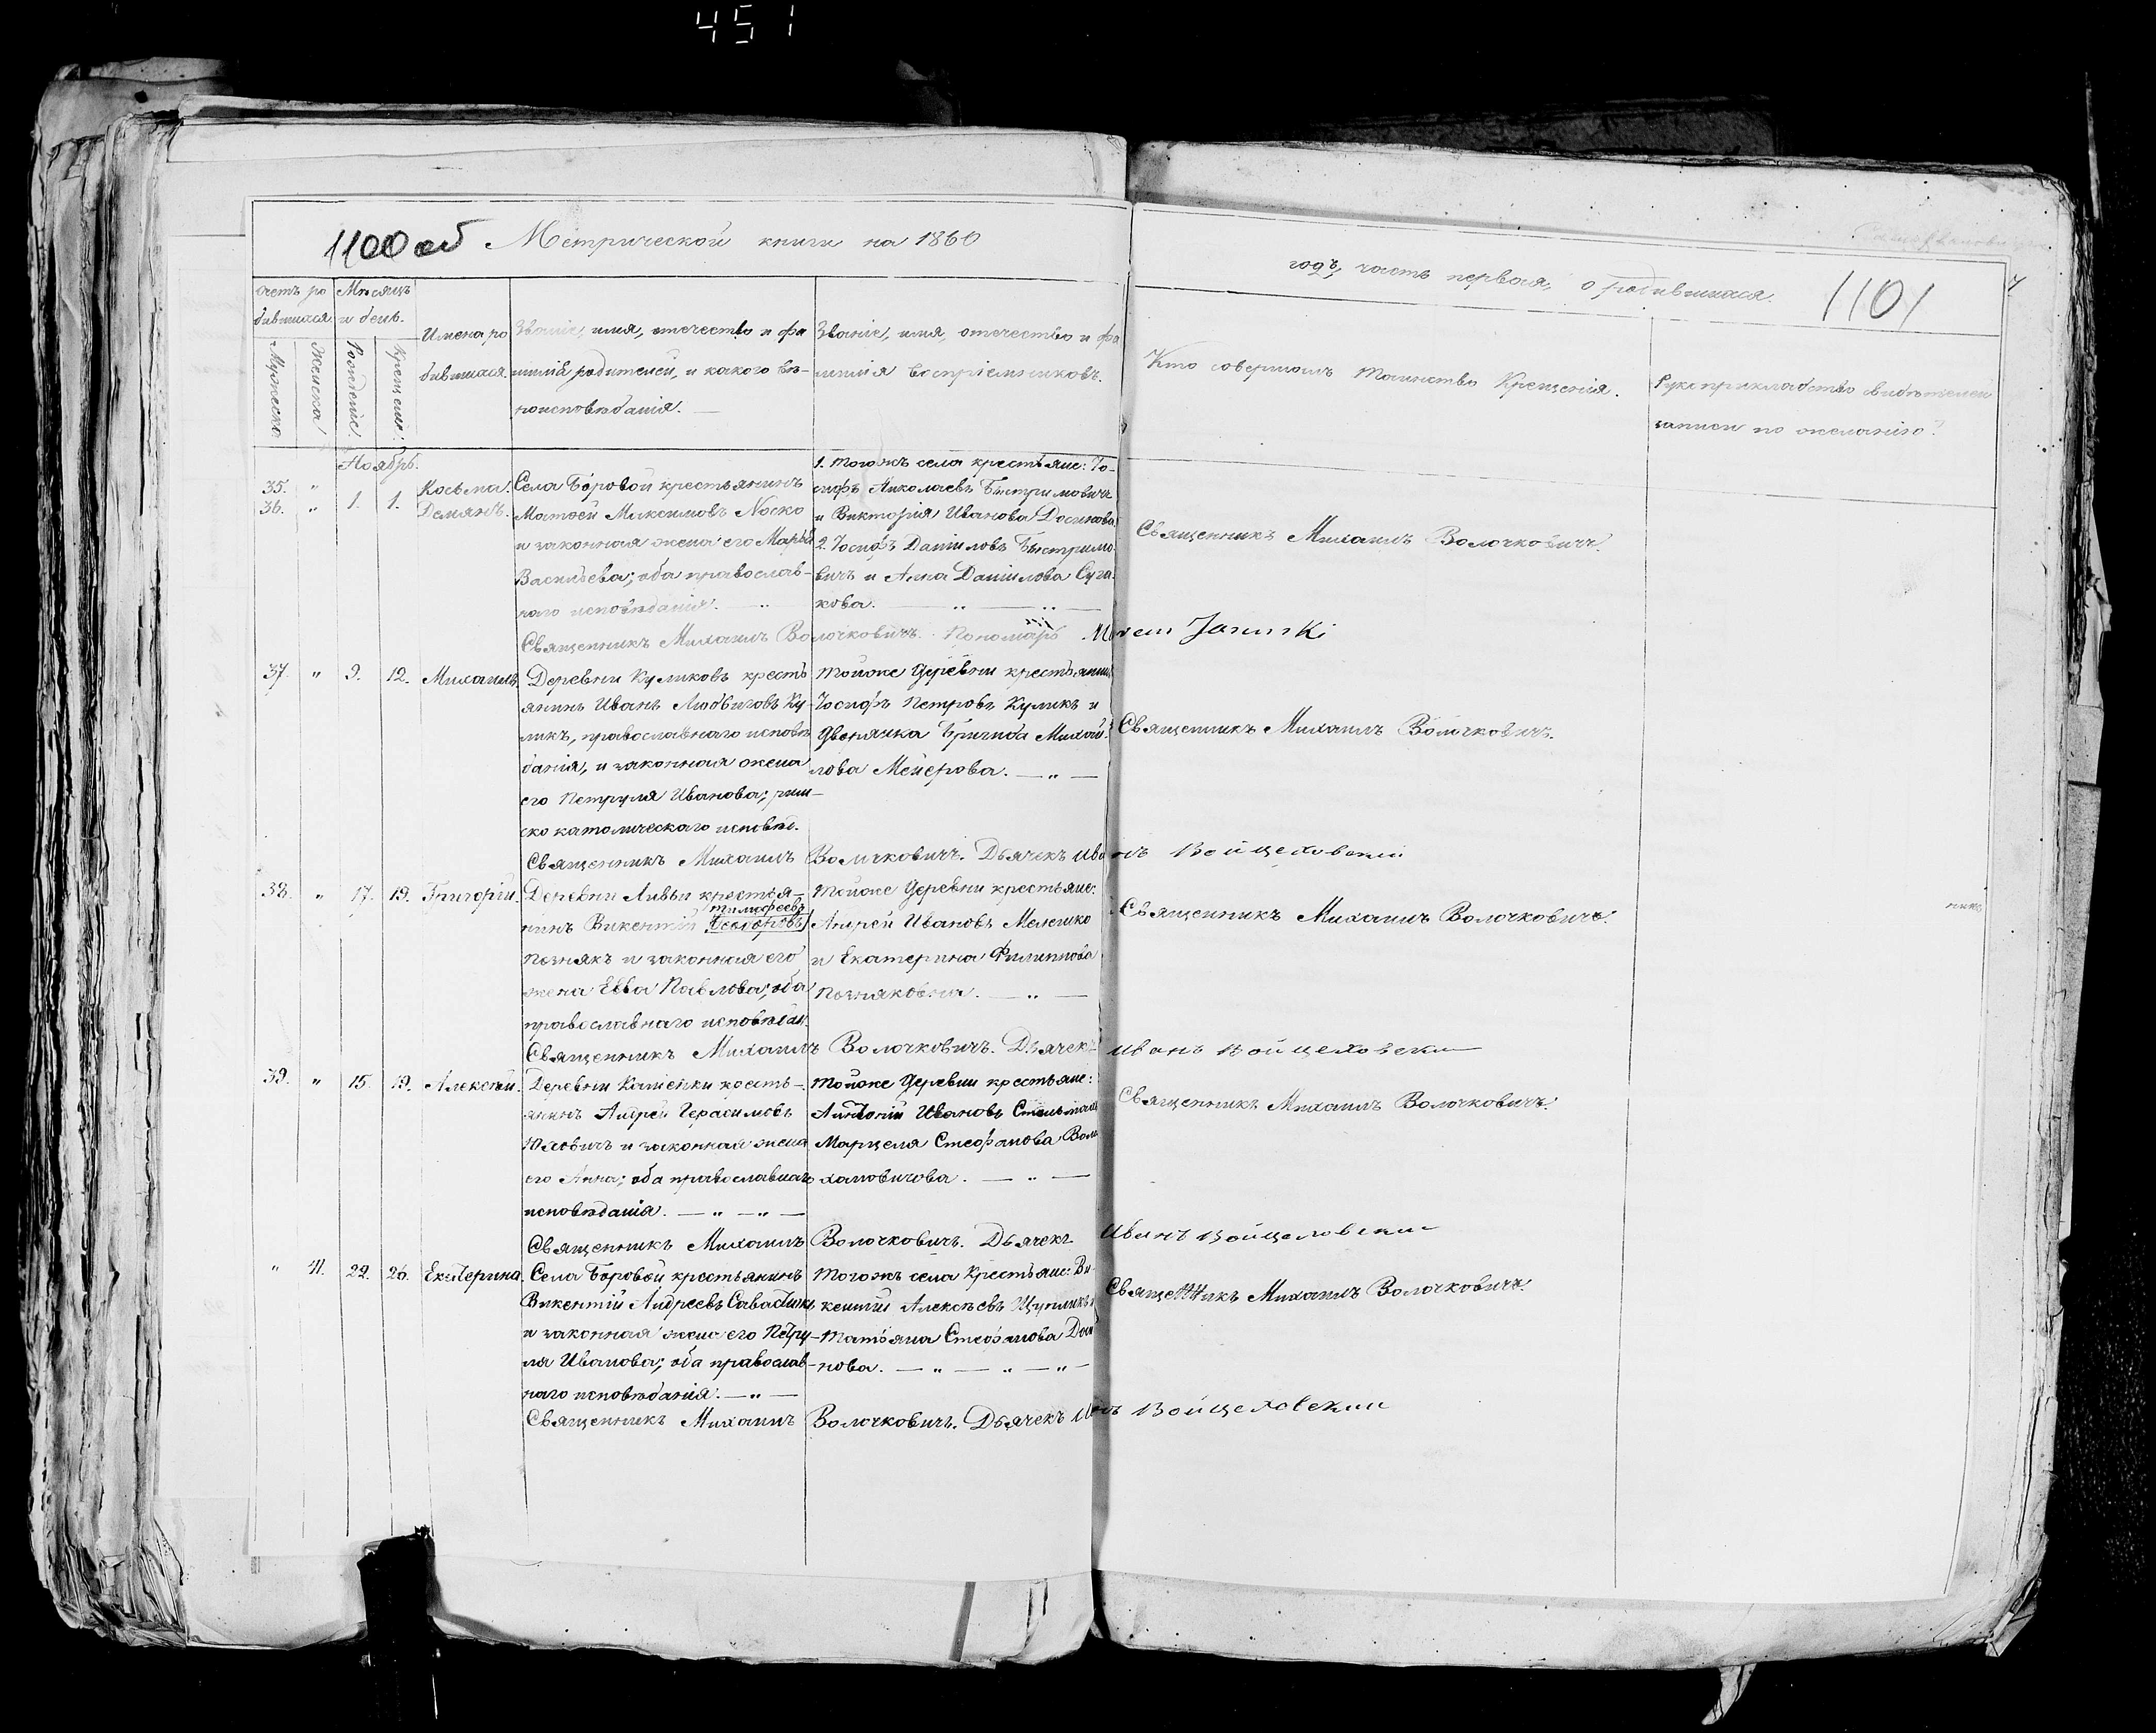 451
1100 об Метрической книги на 1860
годъ, часть первая, о родившихся. 1101
счетъ ро
дившихся
Мѣсяцъ
и день.
Мужеска
Женска
Рожденіе.
Крещенія.
Имена ро
дившихся.
Званіе, имя, отечество и фа
милія родителей, и какого вѣ-
роисповѣданія.
Званіе, имя, отечество и фа
милія воспріемниковъ.
Кто совершалъ таинство Крещенія.
Рукоприкладство свидѣтелей
записи по желанію.
Ноябрь.
35. " 1. 1. Косьма.
36. " Демянъ.
Села Боровой крестьянинъ
Матѳей Максимовъ Носко
и законная жена его Марья
Васильева; оба православ-
наго исповѣданія. "
1. Тогожъ села крестьяне: Іо-
сифъ Николаевъ Быстримовичъ
и Викторія Иванова
2. Іосифъ Даніиловъ Быстримо
вичъ и Анна Даніилова Суга
кова.
Священникъ Михаилъ Волочковичъ.
Священникъ Михаилъ Волочковичъ. Пономарь
37. " 9. 12. Михаилъ
Деревни Куликовъ кресть
янинъ Иванъ Людвиговъ Ку-
ликъ, православнаго исповѣ
данія, и законная жена
его Петруля Иванова; рим-
ско католическаго исповѣд.
Тойже деревни крестьянинъ
Іосифъ Петровъ Куликъ и
дворянка Бригида Михай-
лова Мейерова. — " —
Священникъ Михаилъ Волочковичъ.
Священникъ Михаилъ Волочковичъ. Дьячекъ Иванъ Войцеховскій
38. " 17. 19. Григорій.
Деревни Ливьи крестья-
Тимофеевъ
нинъ Викентій
Познякъ и законная его
жена Евва Павлова; оба
православнаго исповѣдан.
Тойже деревни крестьяне:
Андрей Ивановъ Мелешко
и Екатерина Филиппова
Познякова. — " —
Священникъ Михаилъ Волочковичъ.
Священникъ Михаилъ Волочковичъ. Дьячекъ Иванъ Войцеховскій
39. " 15. 19. Алексѣй.
Деревни Каменки кресть-
янинъ Андрей Герасимовъ
Юховичъ и законная жена
его Анна; оба православнаго
исповѣданія. — " — " —
Тойже деревни крестьяне:
Антоній Ивановъ
Марцеля Стефанова Вола
хановичова. — " —
Священникъ Михаилъ Волочковичъ.
Священникъ Михаилъ Волочковичъ. Дьячекъ Иванъ Войцеховскій
" 41. 22. 26. Екатерина.
Села Боровой крестьянинъ
Викентій Андреевъ
и законная жена его Петру-
ля Иванова; оба православ-
наго исповѣданія. — " —
Тогожъ села крестьяне: Ви-
кентій Алексѣевъ Щупликъ и
Татьяна Стефанова
нова. — " — " — " —
Священникъ Михаилъ Волочковичъ.
Священникъ Михаилъ Волочковичъ. Дьячекъ Иванъ Войцеховскій